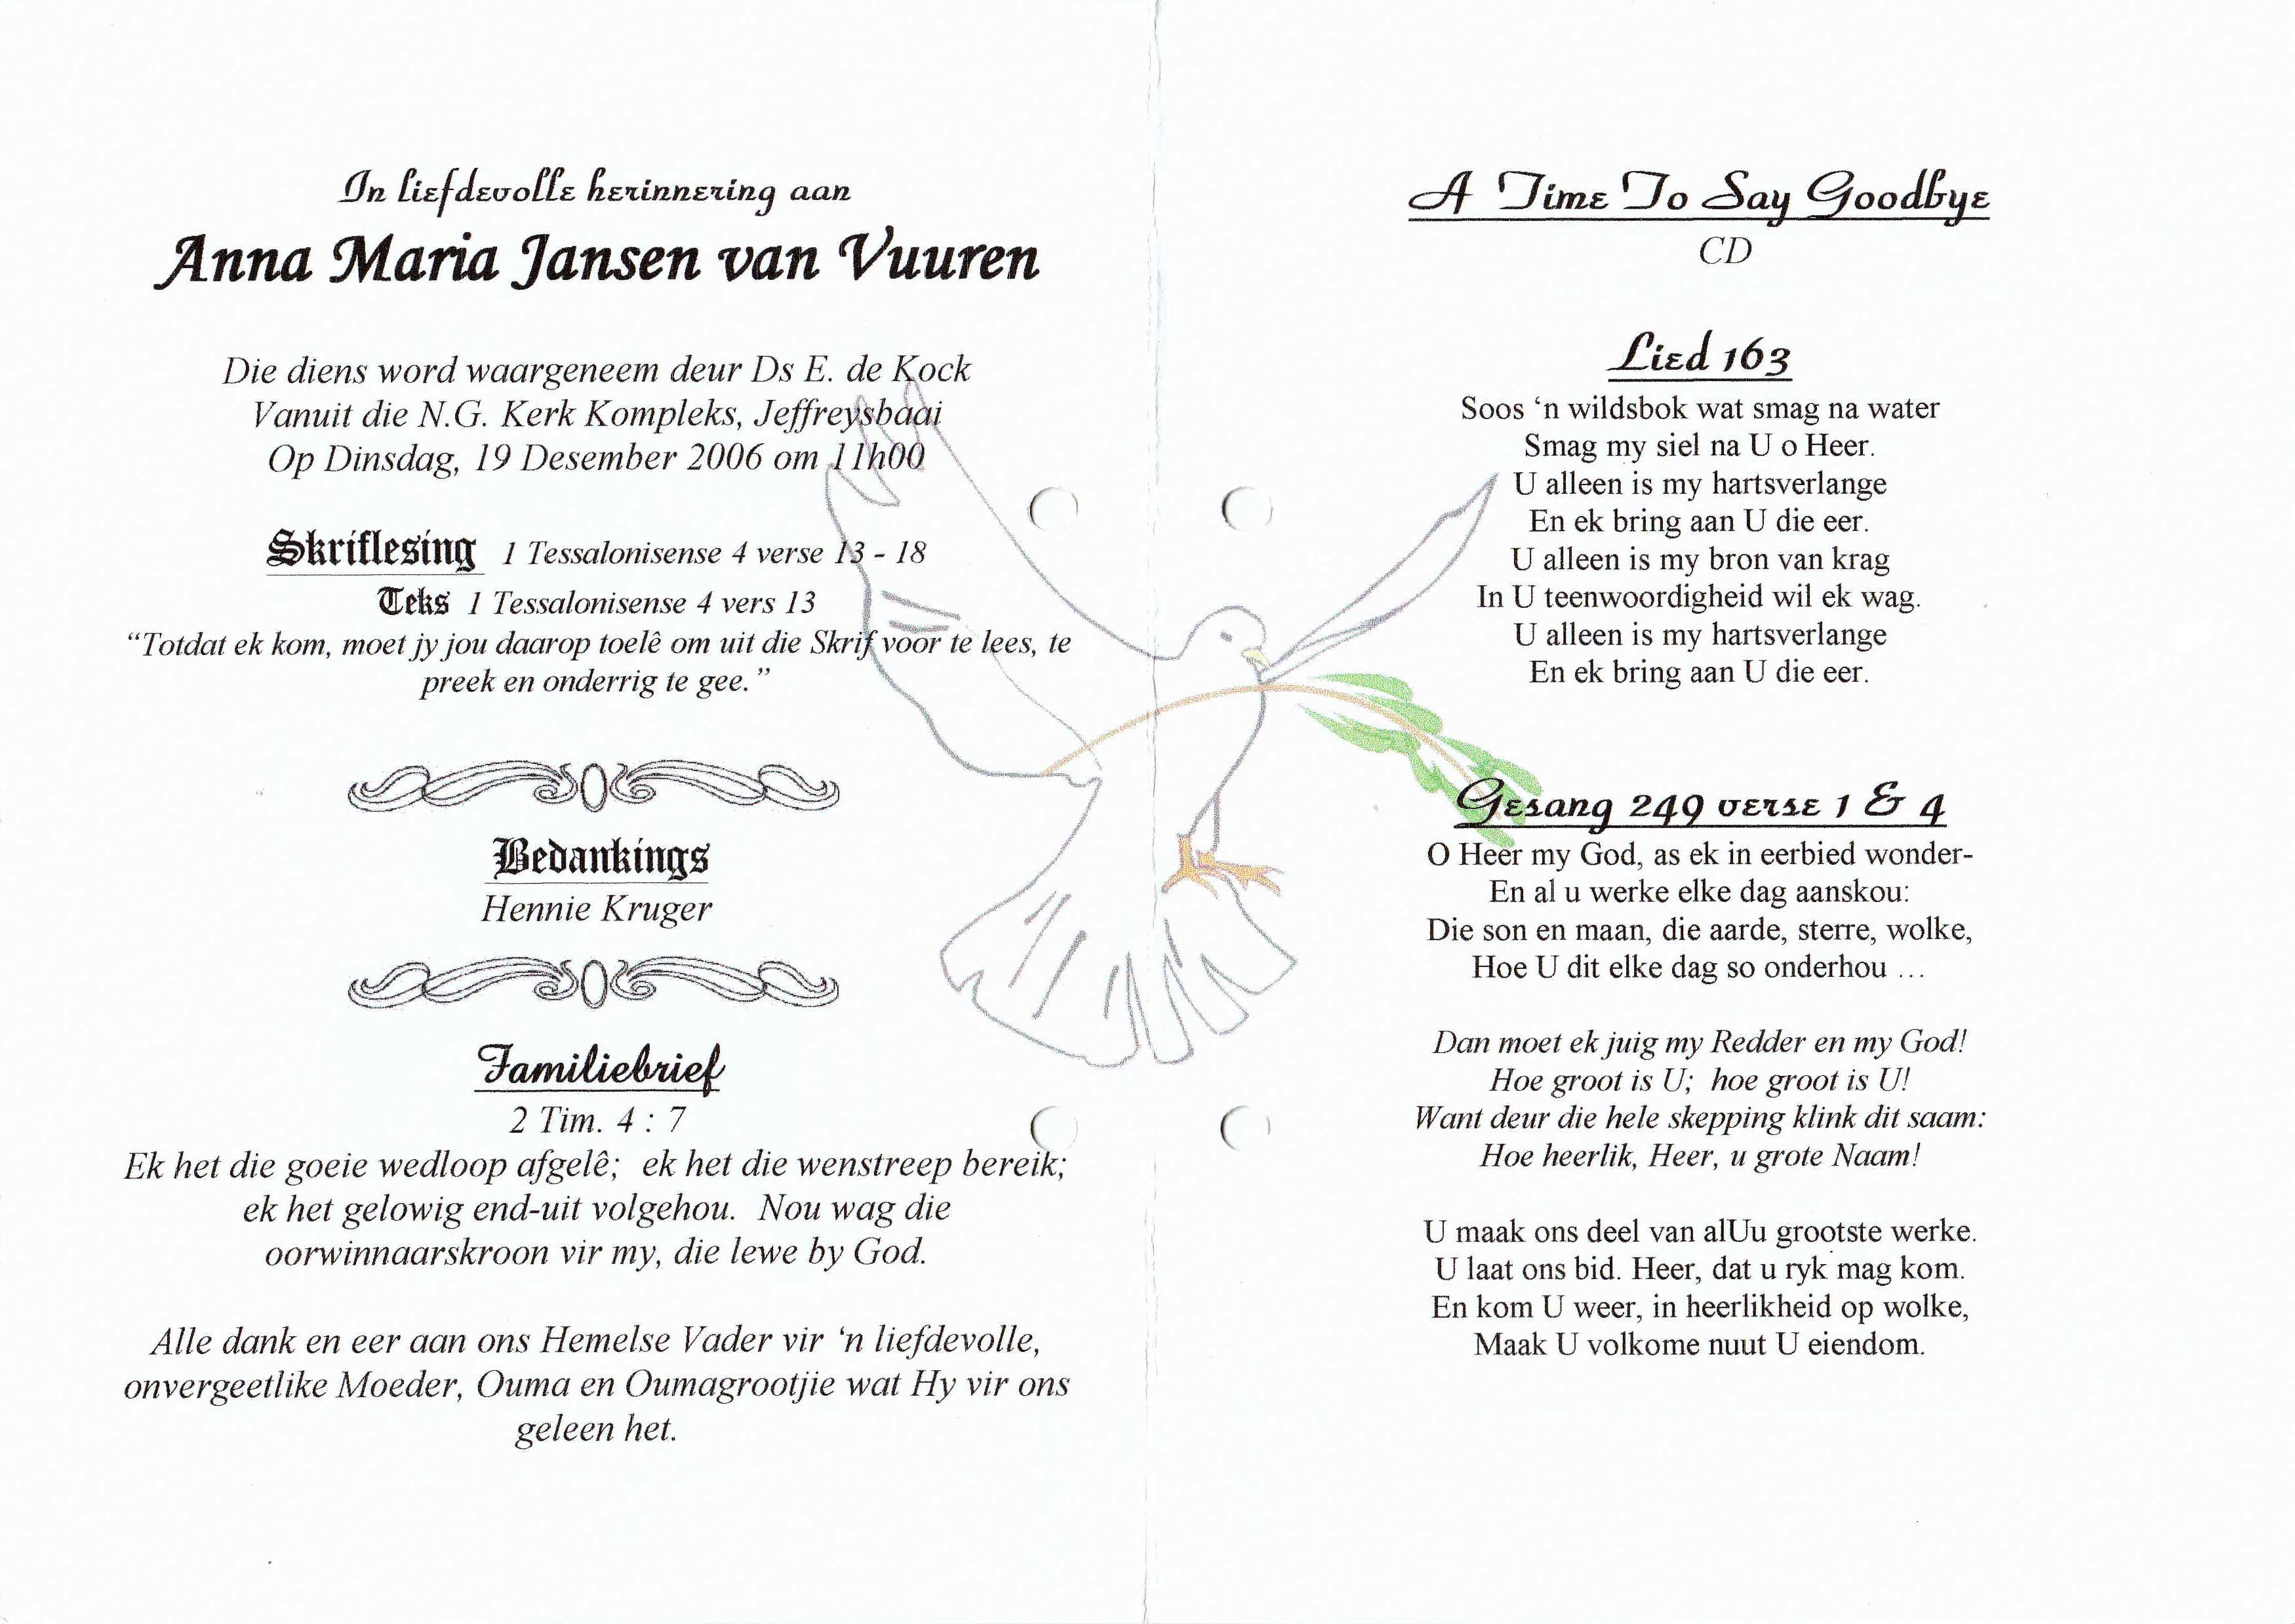 In liefdevolle herinnering aan
Anna Maria Jansen van Vuuren
Die diens word waargeneem deur Ds E. de Kock
Vanuit die N.G. Kerk Kompleks, Jeffreysbaai
Op Dinsdag, 19 Desember 2006 om 11h00
Skriflesing 1 Tessalonisense 4 verse 13 - 18
Teks 1 Tessalonisense 4 vers 13
“Totdat ek kom, moet jy jou daarop toelê om uit die Skrif voor te lees, te
preek en onderrig te gee.”
Bedankings
Hennie Kruger
Familiebrief
2 Tim. 4 : 7
Ek het die goeie wedloop afgelê; ek het die wenstreep bereik;
ek het gelowig end-uit volgehou. Nou wag die
oorwinnaarskroon vir my, die lewe by God.
Alle dank en eer aan ons Hemelse Vader vir ‘n liefdevolle,
onvergeetlike Moeder, Ouma en Oumagrootjie wat Hy vir ons
geleen het.
A Time To Say Goodbye
CD
Lied 163
Soos ‘n wildsbok wat smag na water
Smag my siel na U o Heer.
U alleen is my hartsverlange
En ek bring aan U die eer.
U alleen is my bron van krag
In U teenwoordigheid wil ek wag.
U alleen is my hartsverlange
En ek bring aan U die eer.
Gesang 249 verse 1 & 4
O Heer my God, as ek in eerbied wonder-
En al u werke elke dag aanskou:
Die son en maan, die aarde, sterre, wolke,
Hoe U dit elke dag so onderhou ...
Dan moet ek juig my Redder en my God!
Hoe groot is U; hoe groot is U!
Want deur die hele skepping klink dit saam:
Hoe heerlik, Heer, u grote Naam!
U maak ons deel van alUu grootste werke.
U laat ons bid. Heer, dat u ryk mag kom.
En kom U weer, in heerlikheid op wolke,
Maak U volkome nuut U eiendom.